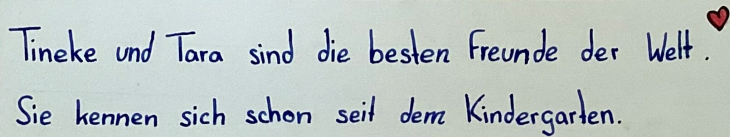 Tineke und Tara sind die besten Freunde der Welt.
Sie kennen sich schon seit dem Kindergarten.